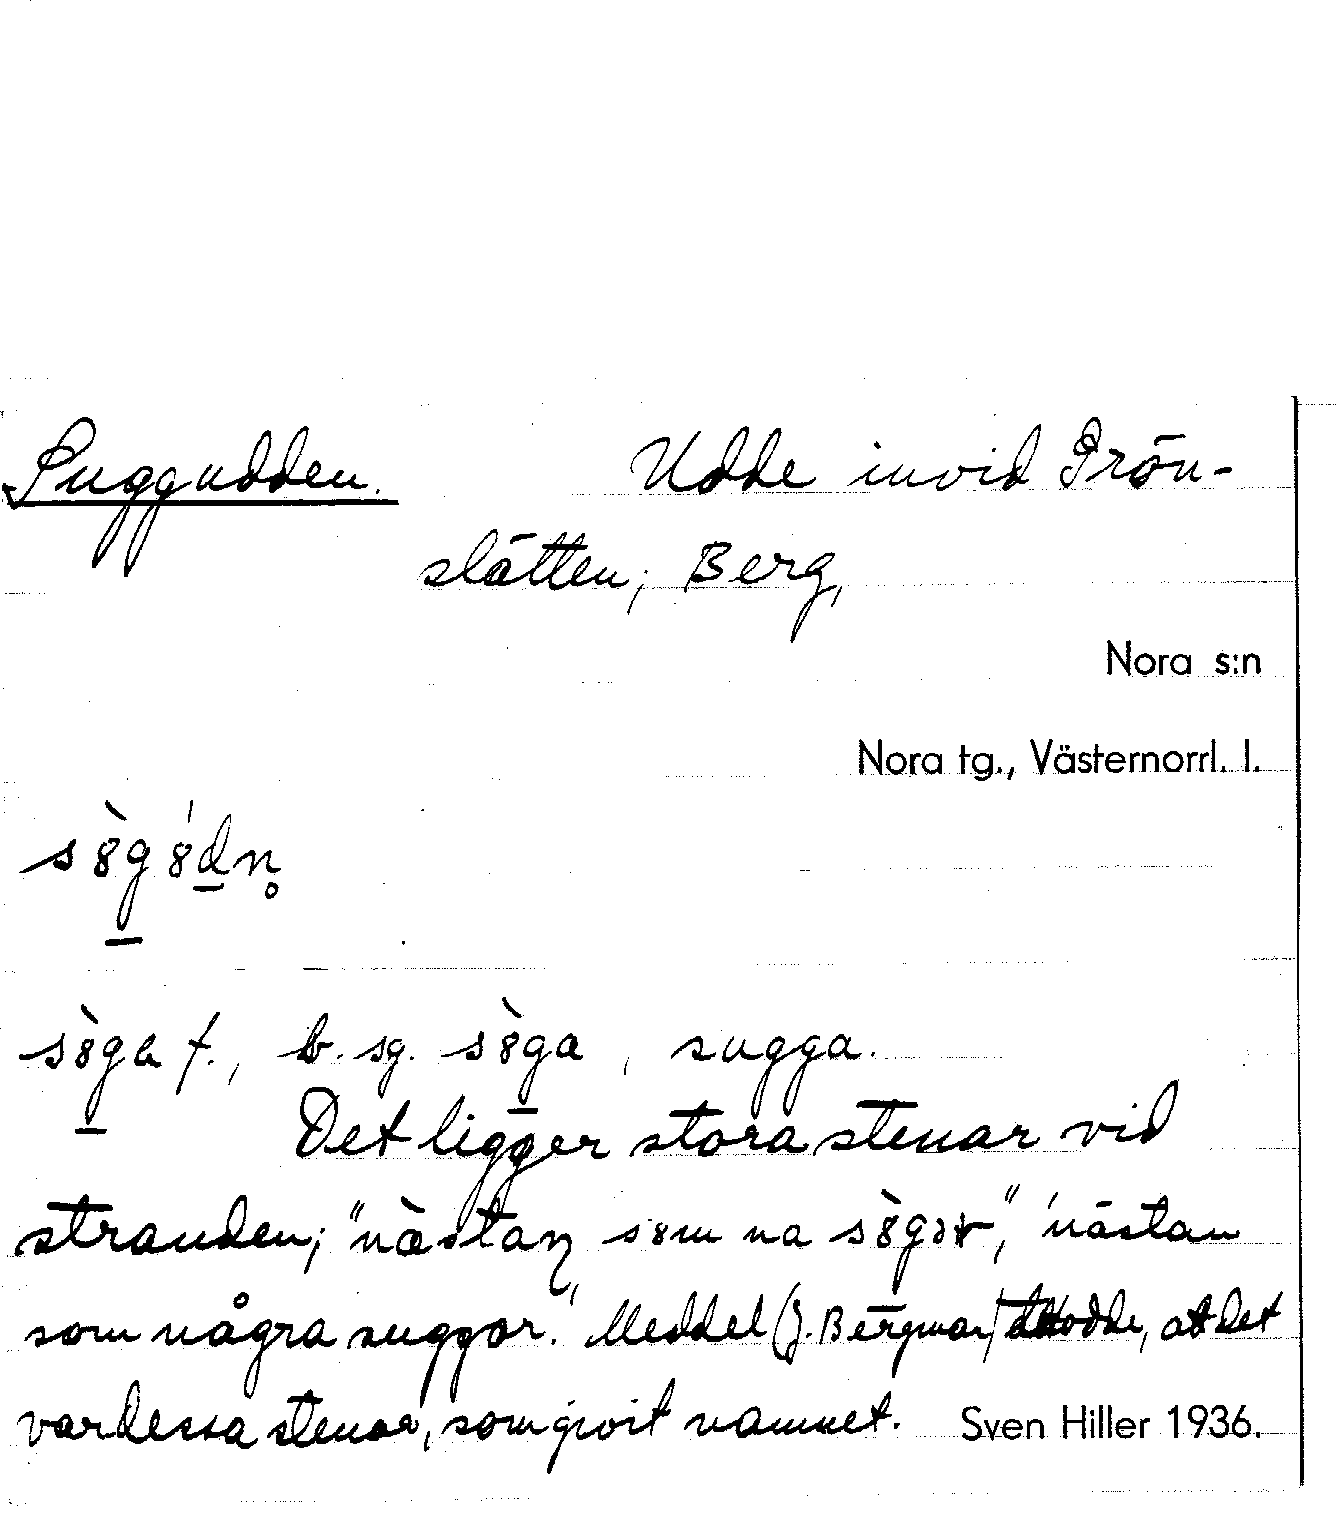 Suggudden. Udde invid Prön-
slätten, Berg,
Nora s:n
Nora tg., Västernorrl. l.
sò̀gódn̥
f., b. sg. , sugga.
Det ligger stora stenar vid
stranden; "næstan som na ", "nästan
som några suggor." Meddel (J. Bergman) trodde, att det
var dessa stenar, som givit namnet. Sven Hiller 1936.